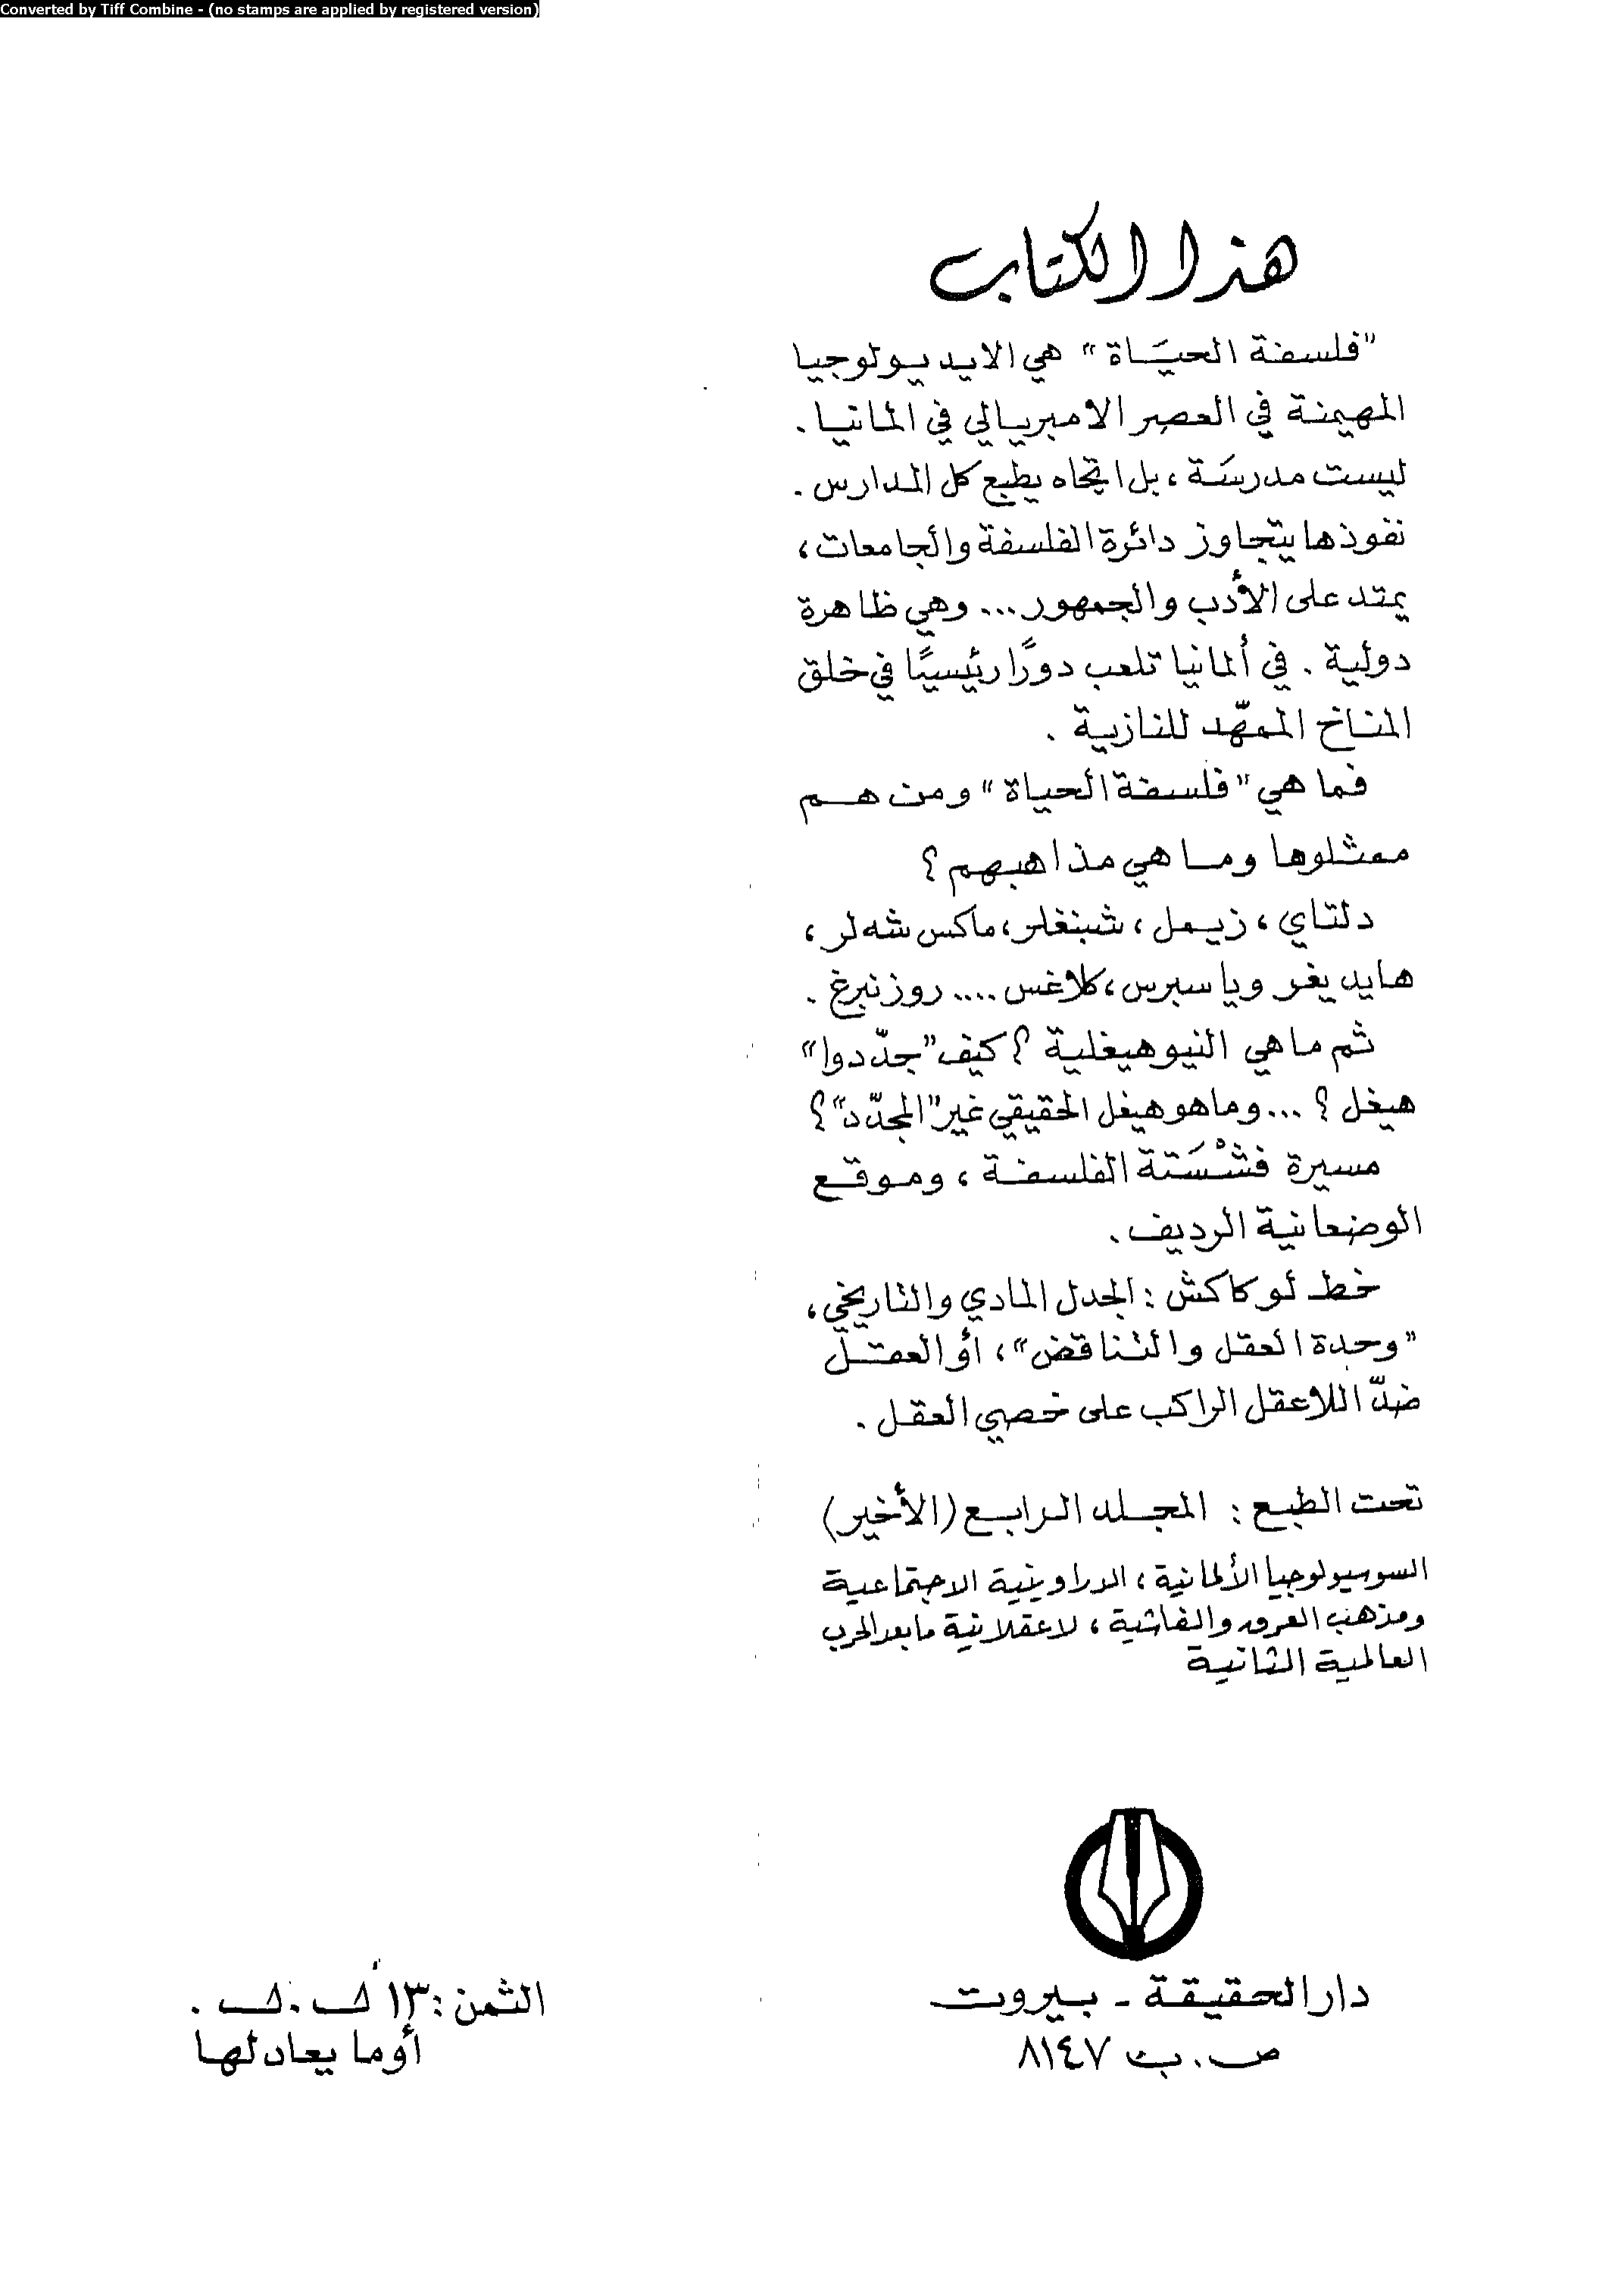 Converted by Tiff Combine - (no stamps are applied by registered version)
هذا الكتاب
"فلسفة الحيَاة" هي الايديولوجيا
المهيمنة في العصر الامبريالي في المانيا .
ليست مدرسَة ، بل اتجاه يطبع كل المدارس .
نفوذها يتجاوز دائرة الفلسفة والجامعات ،
يمتد على الأدب والجمهور ... وهي ظاهرة
دولية . في ألمانيا تلعب دورًا رئيسيًا في خلق
المناخ الممهّد للنازية .
فما هي "فلسفة الحياة" ومن هم
ممثلوها وما هي مذاهبهم ؟
دلتاي ، زيمل ، شبنغلر ، ماكس شه لر ،
هايديغر وياسبرس ، كلاغس .... روزنبرغ .
ثم ما هي النيوهيغلية ؟ كيف "جدّدوا"
هيغل ؟ ... وما هو هيغل الحقيقي غير "المجدّد" ؟
مسيرة فشْسَتة الفلسفة ، وموقع
الوضعانية الرديف .
خط لوكاكش : الجدل المادي والتاريخي ،
"وحدة العقل والتناقض" ، أو العقل
ضدّ اللاعقل الراكب على خصيي العقل .
تحت الطبع : المجلد الرابع (الأخير)
السوسيولوجيا الألمانية ، الدراوينية الاجتماعية
ومذهب العرق والفاشية ، لاعقلانية ما بعد الحرب
العالمية الثانية
دار الحقيقة - بيروت
ص . ب ٨١٤٧
الثمن : ١٣ ل . ل .
أو ما يعادلها